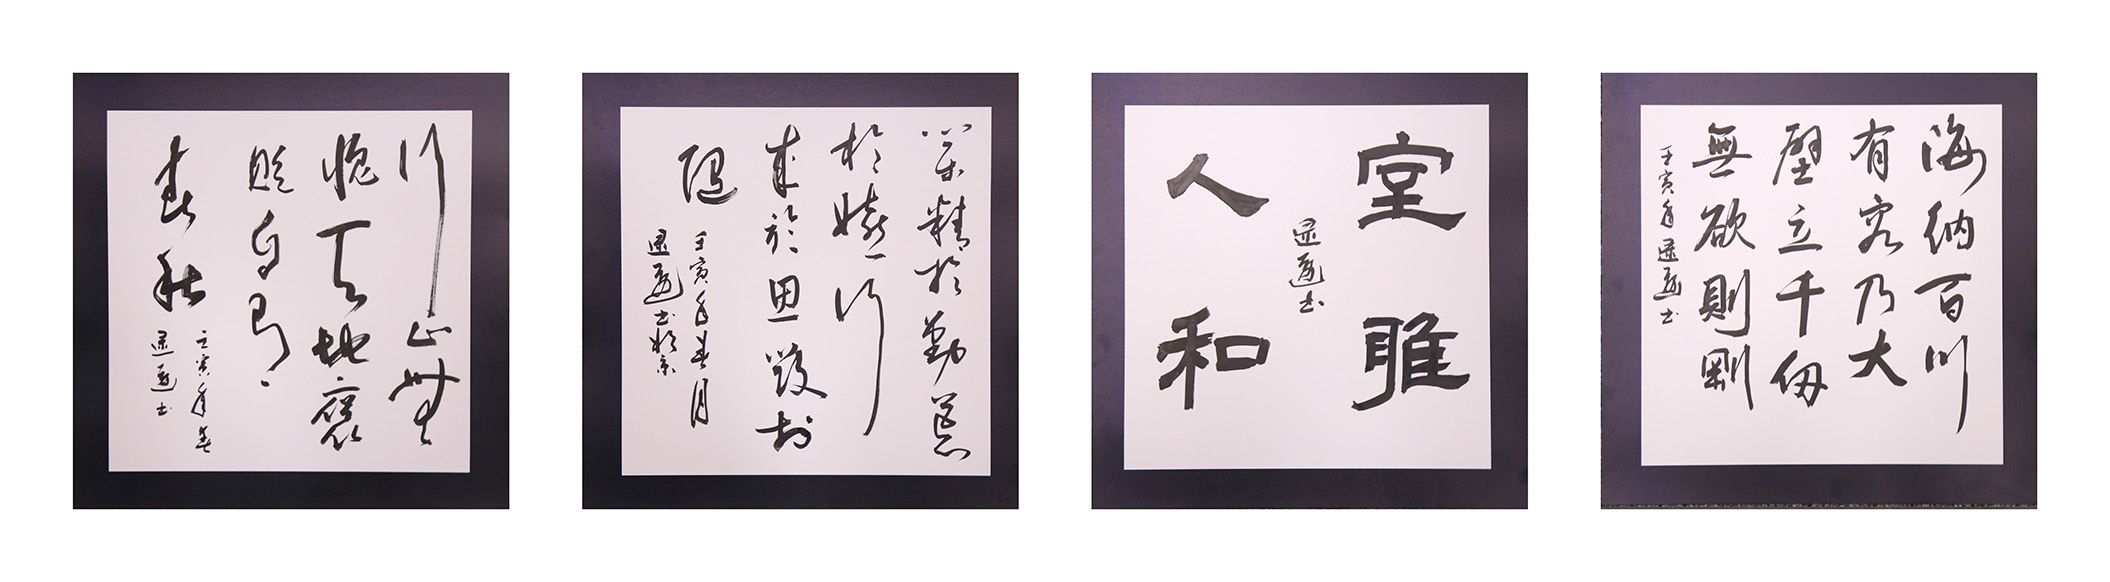 行止無
愧天地褒
貶自有
春秋
壬寅年春
书
業精於勤荒
於嬉行
成於思毀於
隨
壬寅年春月
书於京
堂雅
书
人和
海納百川
有容乃大
壁立千仞
無欲則剛
壬寅年书